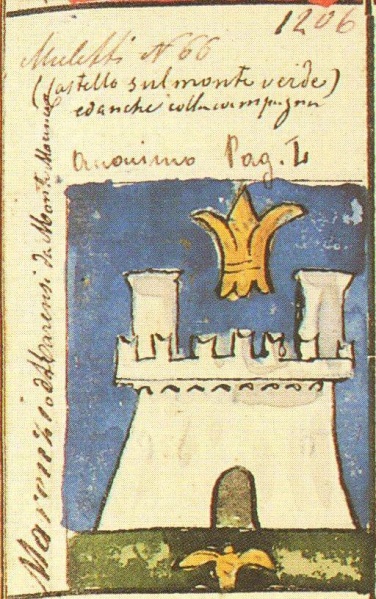 1206
Muletti N 66
(Castello sul monte verde)
ed anche colla campagna
Anonimo Pag. L
Marenzi o da Monte